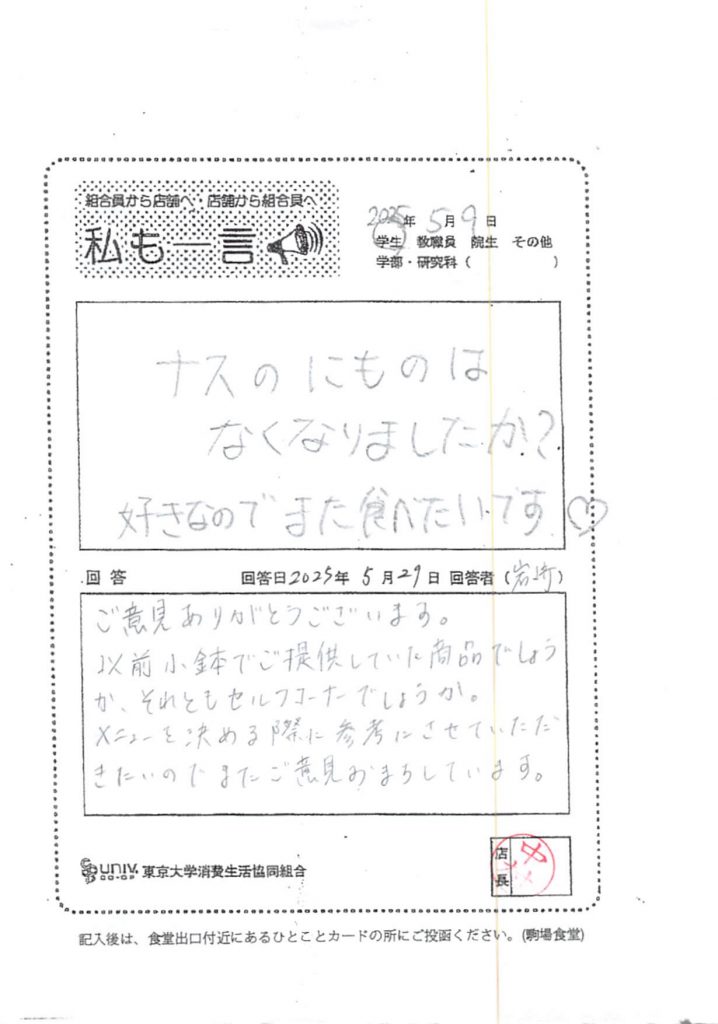 組合員から店舗へ 店舗から組合員へ
私も一言
2025年 5月 9日
学生 教職員 院生 その他
学部・研究科 ( )
ナスのにものは
なくなりましたか?
好きなのでまた食べたいです♡
回答 回答日2025年 5月29日 回答者 (岩崎)
ご意見ありがとうございます。
以前小鉢でご提供していた商品でしょう
か、それともセルフコーナーでしょうか。
メニューを決める際に参考にさせていただ
きたいのでまたご意見おまちしています。
UNIV. CO-OP 東京大学消費生活協同組合
店長
記入後は、食堂出口付近にあるひとことカードの所にご投函ください。(駒場食堂)